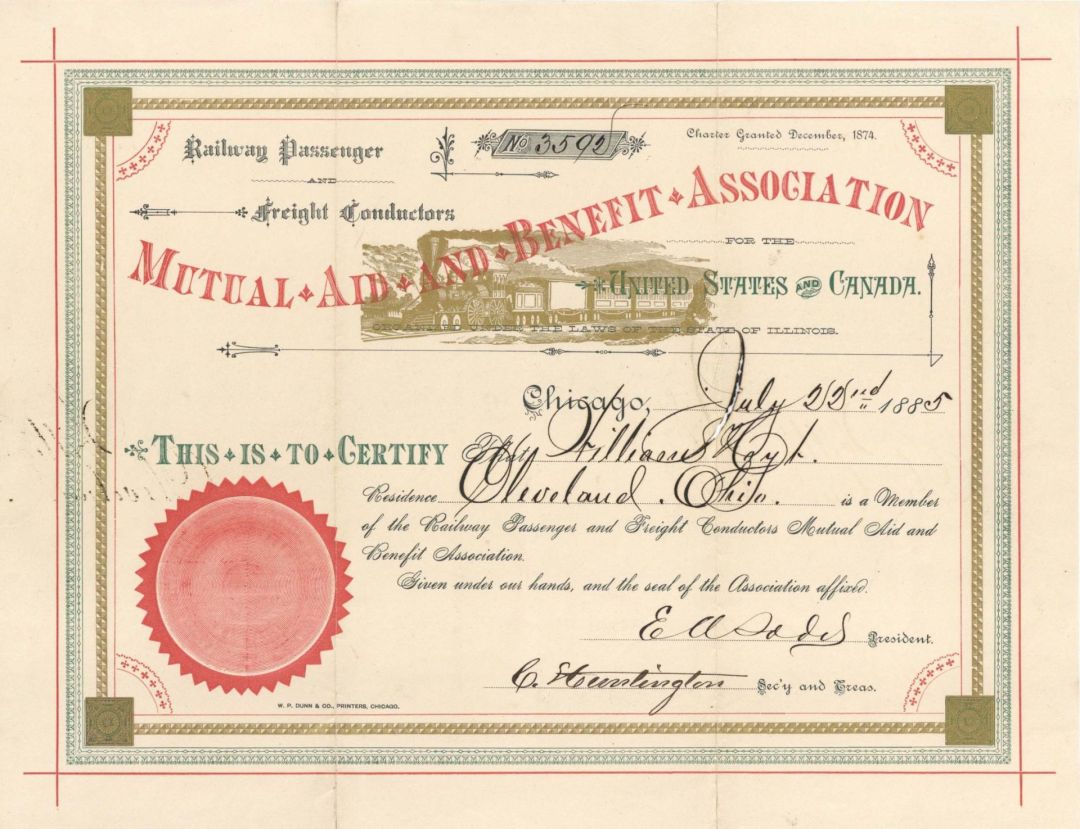 Railway Passenger
AND
Freight Conductors
No 3592
Charter Granted December, 1874.
MUTUAL AID AND BENEFIT ASSOCIATION
FOR THE
UNITED STATES AND CANADA.
ORGANIZED UNDER THE LAWS OF THE STATE OF ILLINOIS.
Chicago, July 22nd 1885
THIS IS TO CERTIFY That William Hoyt.
Residence Cleveland. Ohio. is a Member
of the Railway Passenger and Freight Conductors Mutual Aid and
Benefit Association.
Given under our hands, and the seal of the Association affixed.
E A President.
C. Huntington Sec'y and Treas.
W. P. DUNN & CO., PRINTERS, CHICAGO.